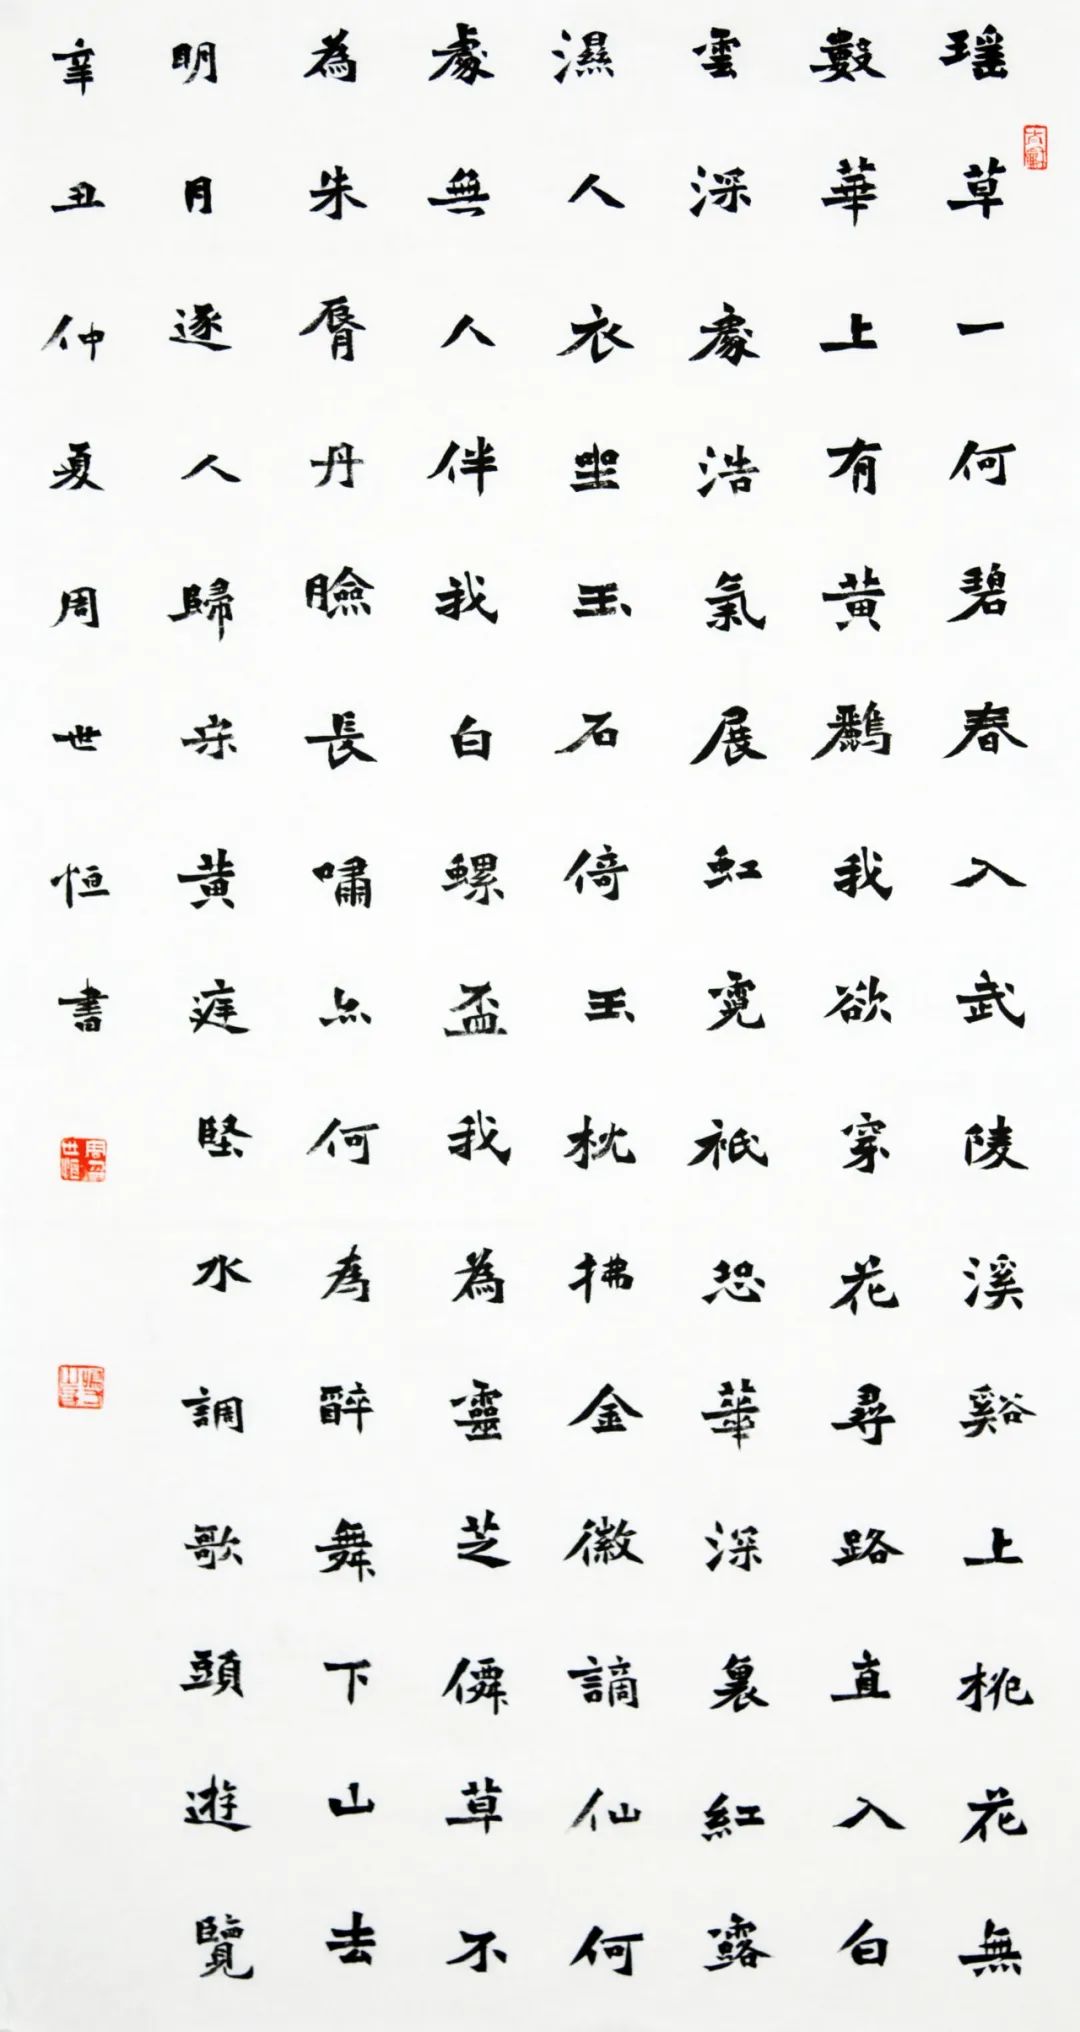 瑶草一何碧春入武陵溪谿上桃花無
數華上有黃鸝我欲穿花尋路直入白
雲深處浩氣展虹霓祇恐華深裏紅露
濕人衣坐玉石倚玉枕拂金徽謫仙何
處無人伴我白螺盃我為靈芝僊草不
為朱脣丹臉長嘯点何為醉舞下山去
明月逐人歸宋黃庭堅水調歌頭遊覽
辛丑仲夏周世恒書